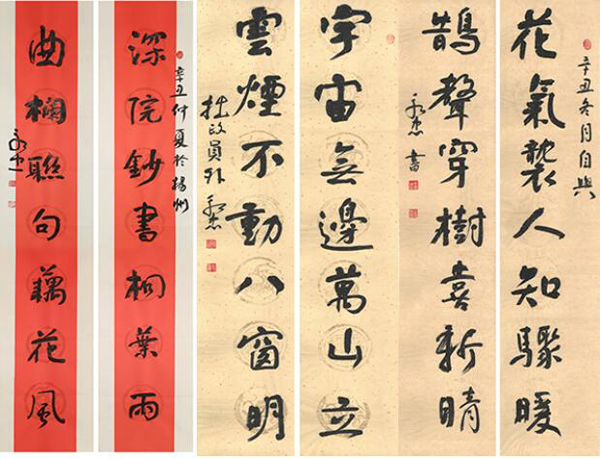 辛丑冬月自興
花氣襲人知驟暖
鵲聲穿樹喜新晴
書
宇宙無邊萬山立
雲煙不動八窗明
辛丑仲夏於揚州
深院鈔書桐葉雨
曲欄聯句藕花風